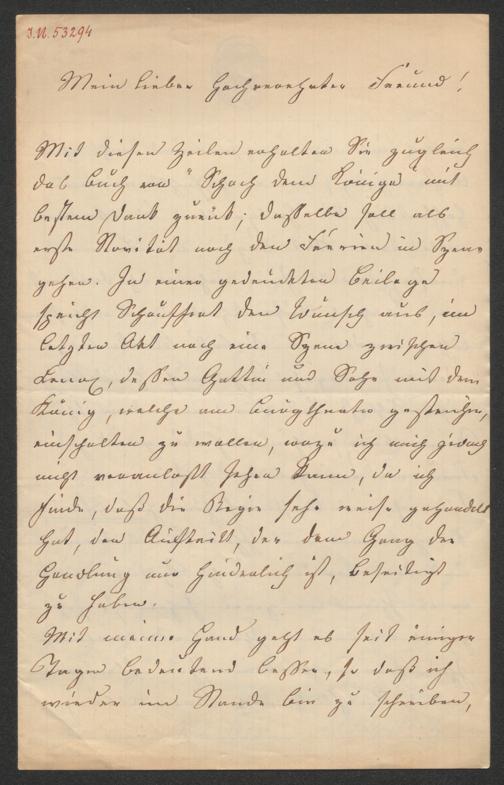 I.N. 53294
Mein lieber hochverehrter Freund!
Mit diesen Zeilen erhalten Sie zugleich
das Buch von "Schach dem Könige" mit
bestem Dank zurück; dasselbe soll als
erste Novität nach den Feerien in Szene
gehen. In einer gedruckten Beilage
spricht Schauffert den Wunsch aus, im
letzten Akt noch eine Szene zwischen
Lenox, dessen Gattin und Sohn mit dem
König, welche am Burgtheater gestrichen,
einschalten zu wollen, wozu ich mich jedoch
nicht veranlaßt sehen kann, da ich
finde, daß die Regie sehr weise gehandelt
hat, den Auftritt, der dem Gang der
Handlung nur hinderlich ist, beseitigt
zu haben.
Mit meiner Hand geht es seit einigen
Tagen bedeutend besser, so daß ich
wieder im Stande bin zu schreiben,